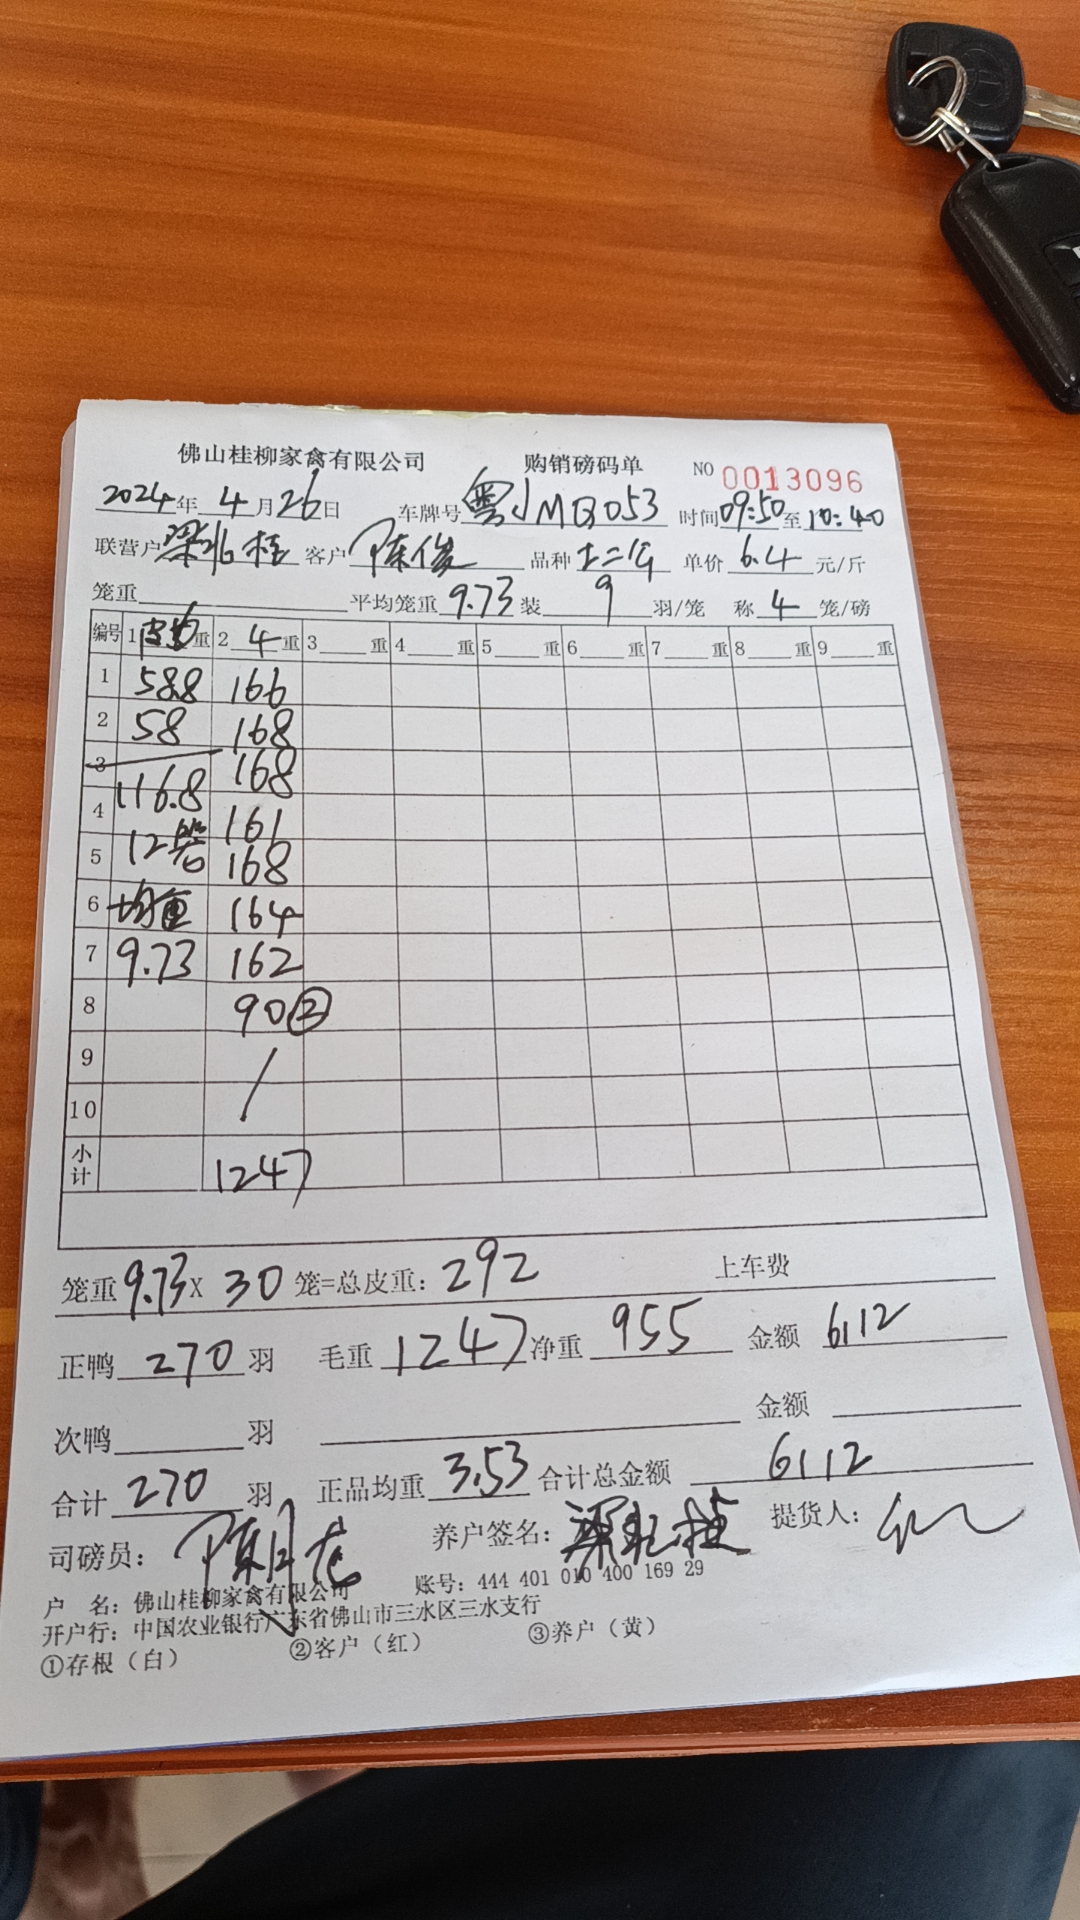 佛山桂柳家禽有限公司 购销磅码单 NO 0013096
2024年 4月26日 车牌号 粤JMQ053 时间09:50至10:40
联营户 梁北桂 客户 陈俊 品种 土二公 单价 6.4 元/斤
笼重 平均笼重 9.73 装 9 羽/笼 称 4 笼/磅
编号 1 皮 重 2 4 重 3 重 4 重 5 重 6 重 7 重 8 重 9 重
1 58.8 166
2 58 168
3 168
4 116.8 161
5 12笼 168
6 均重 164
7 9.73 162
8 90②
9 /
10
小计 1247
笼重 9.73 X 30 笼=总皮重: 292 上车费
正鸭 270 羽 毛重 1247 净重 955 金额 6112
次鸭 羽 金额
合计 270 羽 正品均重 3.53 合计总金额 6112
司磅员: 养户签名: 梁北桂 提货人:
户 名: 佛山桂柳家禽有限公司 账号: 444 401 010 400 169 29
开户行: 中国农业银行广东省佛山市三水区三水支行
①存根（白） ②客户（红） ③养户（黄）